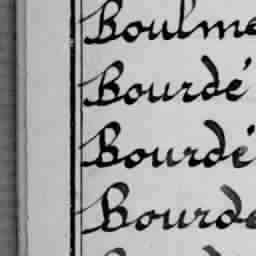 Boulme
Bourdé
Bourdé
Bourde